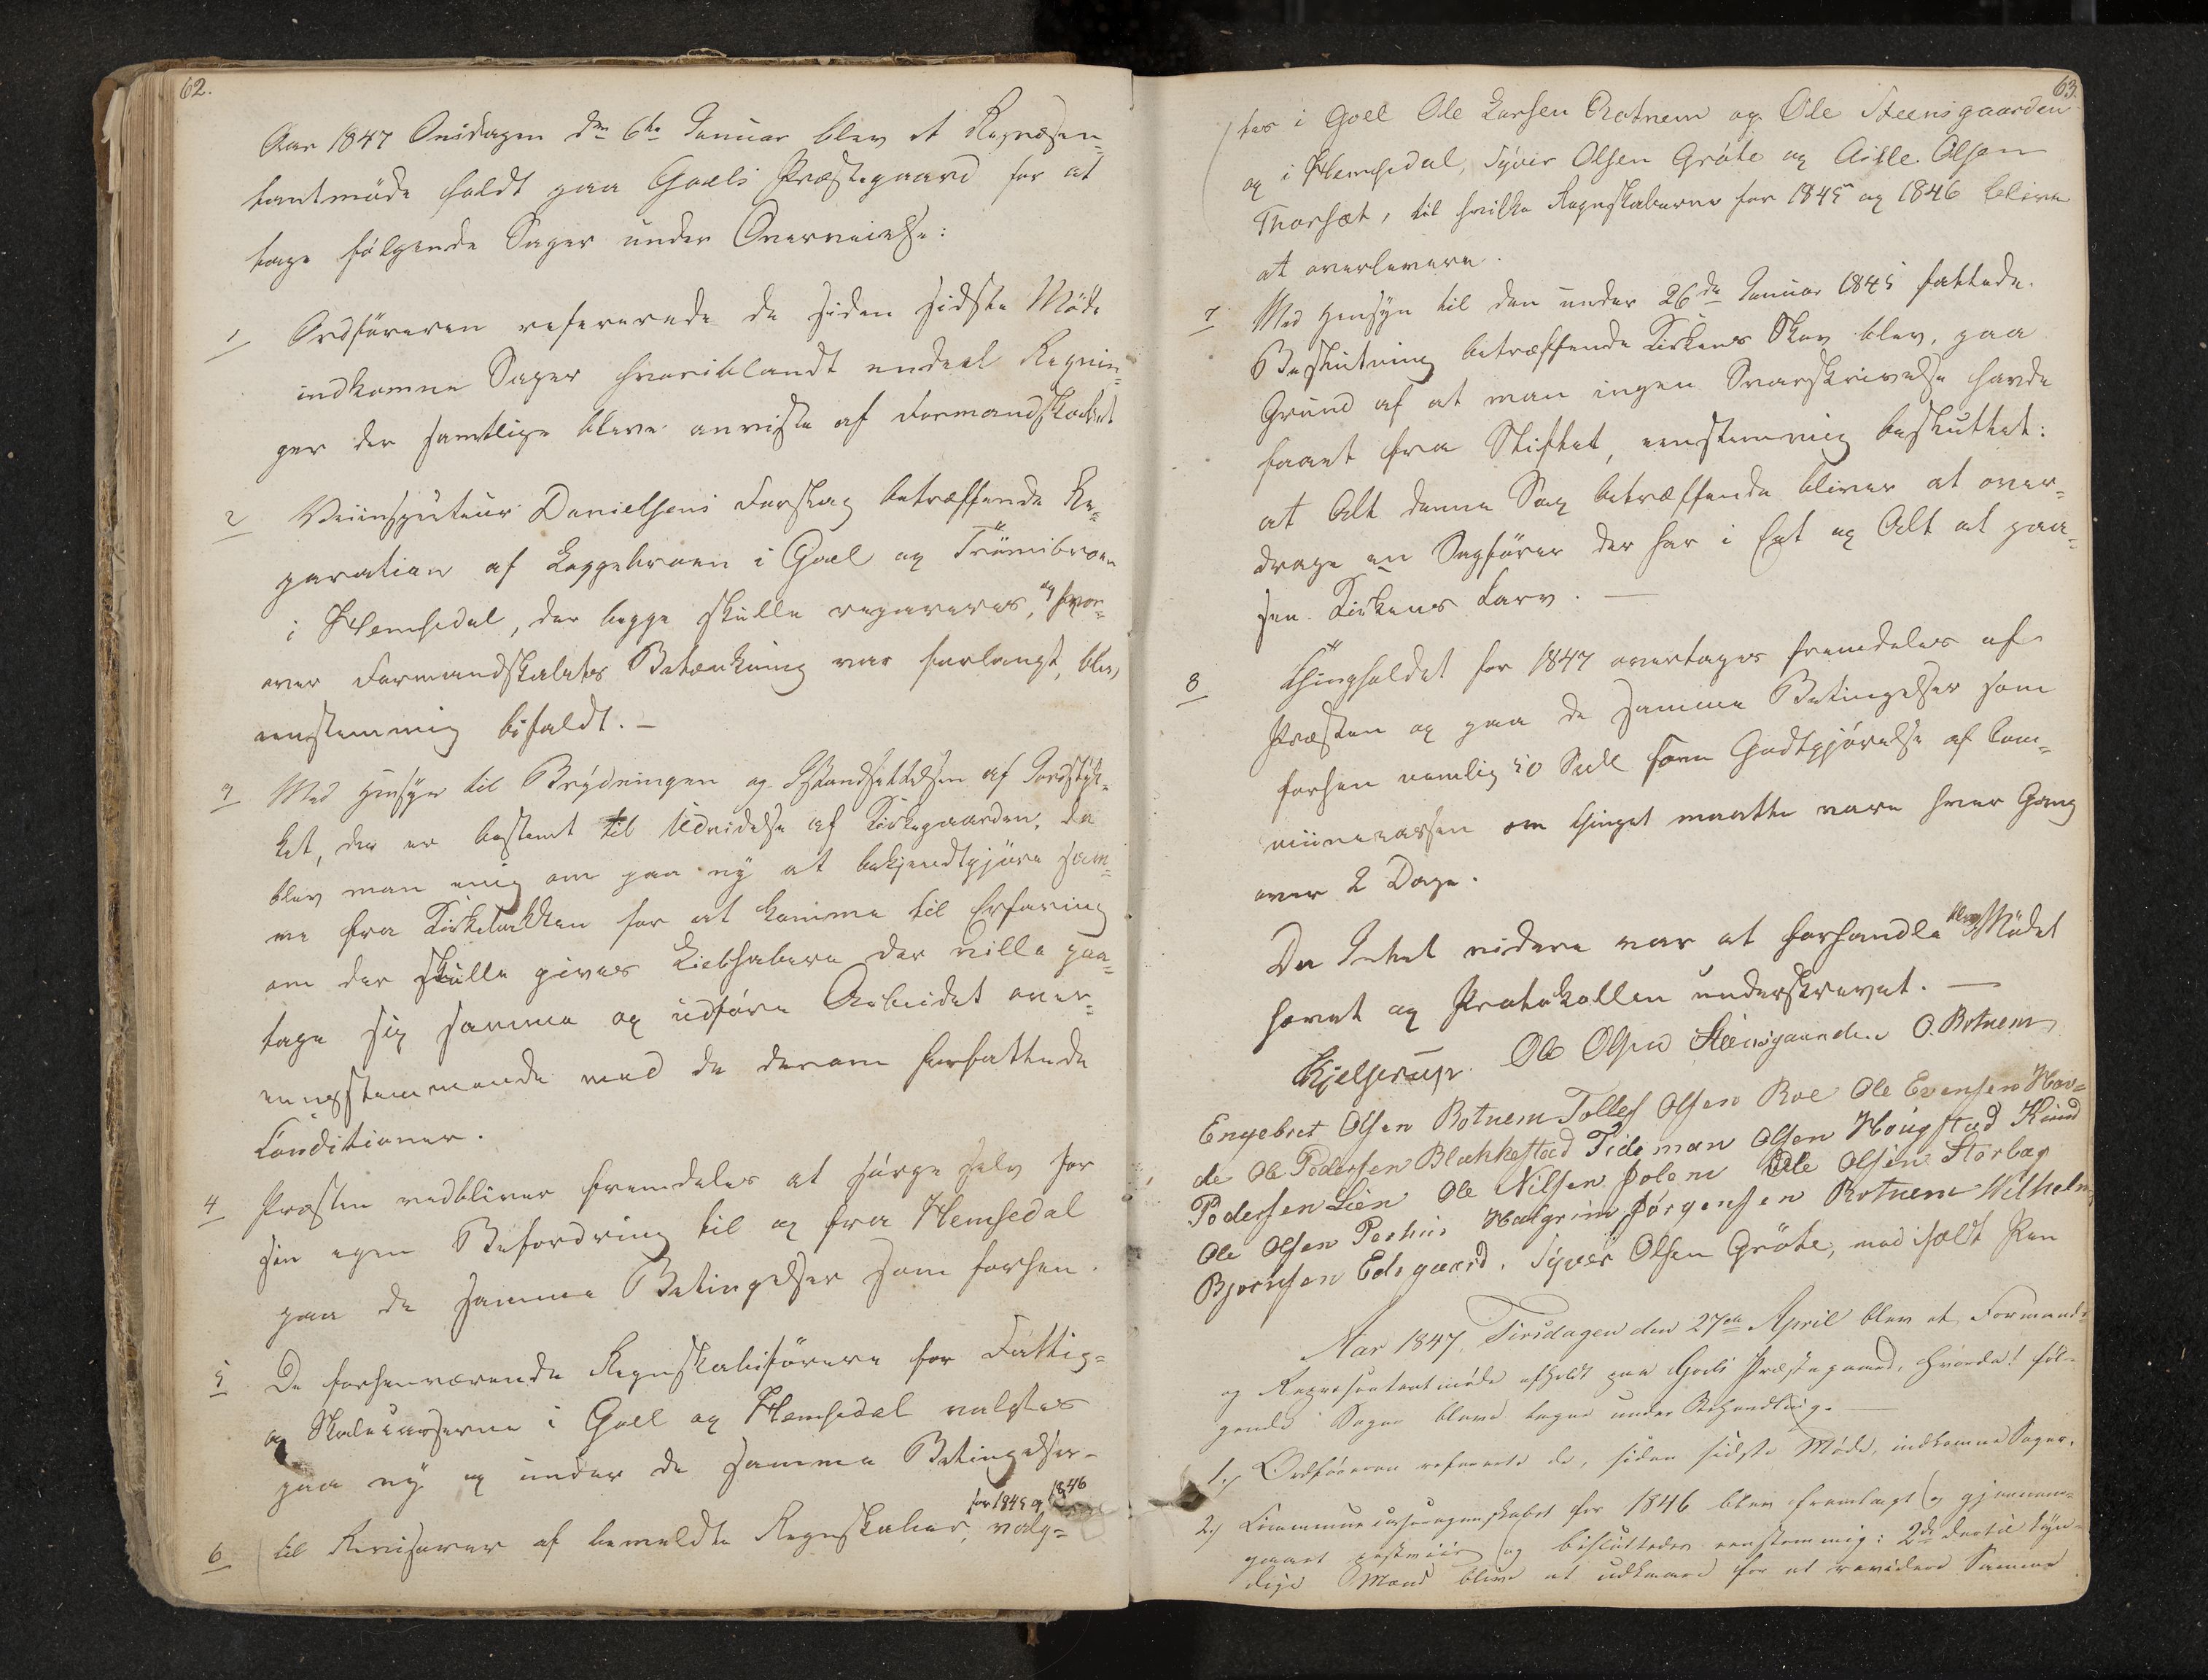 62.
Aar 1847 Onsdagen dn 6te Januar blev et Repræsen-
tantmøde holdt paa Goels Præstegaard for at
tage følgende Sager under Overveielse:
1 Ordføreren refererede de siden sidste Møde
indkomne Sager hvoriblandt endeel Regnin-
ger der samtlige bleve anviste af Formandskabet
2 Veiinspecteur Danielsens Forslag betræffende Re-
paration af Loggebroen i Goel og Trømibroen
i Hemsedal, der begge skulle repareres, og hvor-
over Formandskabets Betænkning var forlangt, blev
eenstemmig bifaldt. -
3 Med Hensyn til Brydningen og Istandsættelsen af Jordstyk-
ket, der er bestemt til Udvidelse af Kirkegaarden, da
blev man enig om paa ny at bekjendtgjøre sam-
me fra Kirkebakken for at komme til Erfaring
om der skulle gives Liebhabere der ville paa-
tage sig samme og udføre Arbeidet over-
eensstemmende med de derom forfattede
Conditioner.
4 Præsten vedbliver fremdeles at sørge selv for
sin egen Befordring til og fra Hemsedal
paa de samme Betingelser som forhen.
5 De forhenværende Regnskabsførere for Fattig-
og Skolecasserne i Goel og Hemsedal valgtes
paa ny og under de samme Betingelser-
6 til Revisorer af bemeldte Regnskaber, for 1845 og 1846 valg-
63.
tes i Goel Ole Larsen Rotnem og Ole Steensgaarden
og i Hemsedal, Syver Olsen Grøte og Aslle Olsen
Thorsæt, til hvilke Regnskaberne for 1845 og 1846 blive
at overlevere.
7 Med Hensyn til den under 26de Januar 1845 fattede
Beslutning betræffende Kirkens Skov blev, paa
Grund af at man ingen Svarskrivelse havde
faaet fra Stiftet, eenstemmig besluttet:
at Alt denne Sag betræffende bliver at over-
drage en Sagfører der har i Eet og Alt at paa-
see Kirkens Tarv. —
8 Thingholdet for 1847 overtages fremdeles af
Præsten og paa de samme Betingelser som
forhen nemlig 50 Spdl som Godtgjørelse af Com-
munecassen om Thinget maatte vare hver Gang
over 2 Dage.
Da Intet videre var at forhandle blev Mødet
hævet og Protokollen underskrevet. —
Kjelstrup. Ole Olsen Steensgaarden O. Rotnem
Engebret Olsen Rotnem Tollef Olsen Roe Ole Evensen Hov-
de Ole Pedersen Blakkestad Tideman Olsen Hougstad Knud
Pedersen Lien Ole Nilsen Jolem Ole Olsen Storbar
Ole Olsen Peshus Halgrim Jørgensen Rotnem Wilhelm
Bjørnsen Edsgaard. Syver Olsen Grøte, med iholdt Pen
Aar 1847, Tirsdagen den 27de April blev et Formands-
og Repræsentantmøde afholdt paa Goels Præstegaard, hvorda! føl-
gende Sager bleve tagne under Behandling. —
1.) Ordføreren refererede de, siden sidste Møde, indkomne Sager.
2.) Communecasseregnskabet for 1846 blev fremlagt (og gjennem-
gaaet og besluttedes eenstemmig: 2de dertil kyn-
dige Mænd blive at udkaare for at revidere Samme